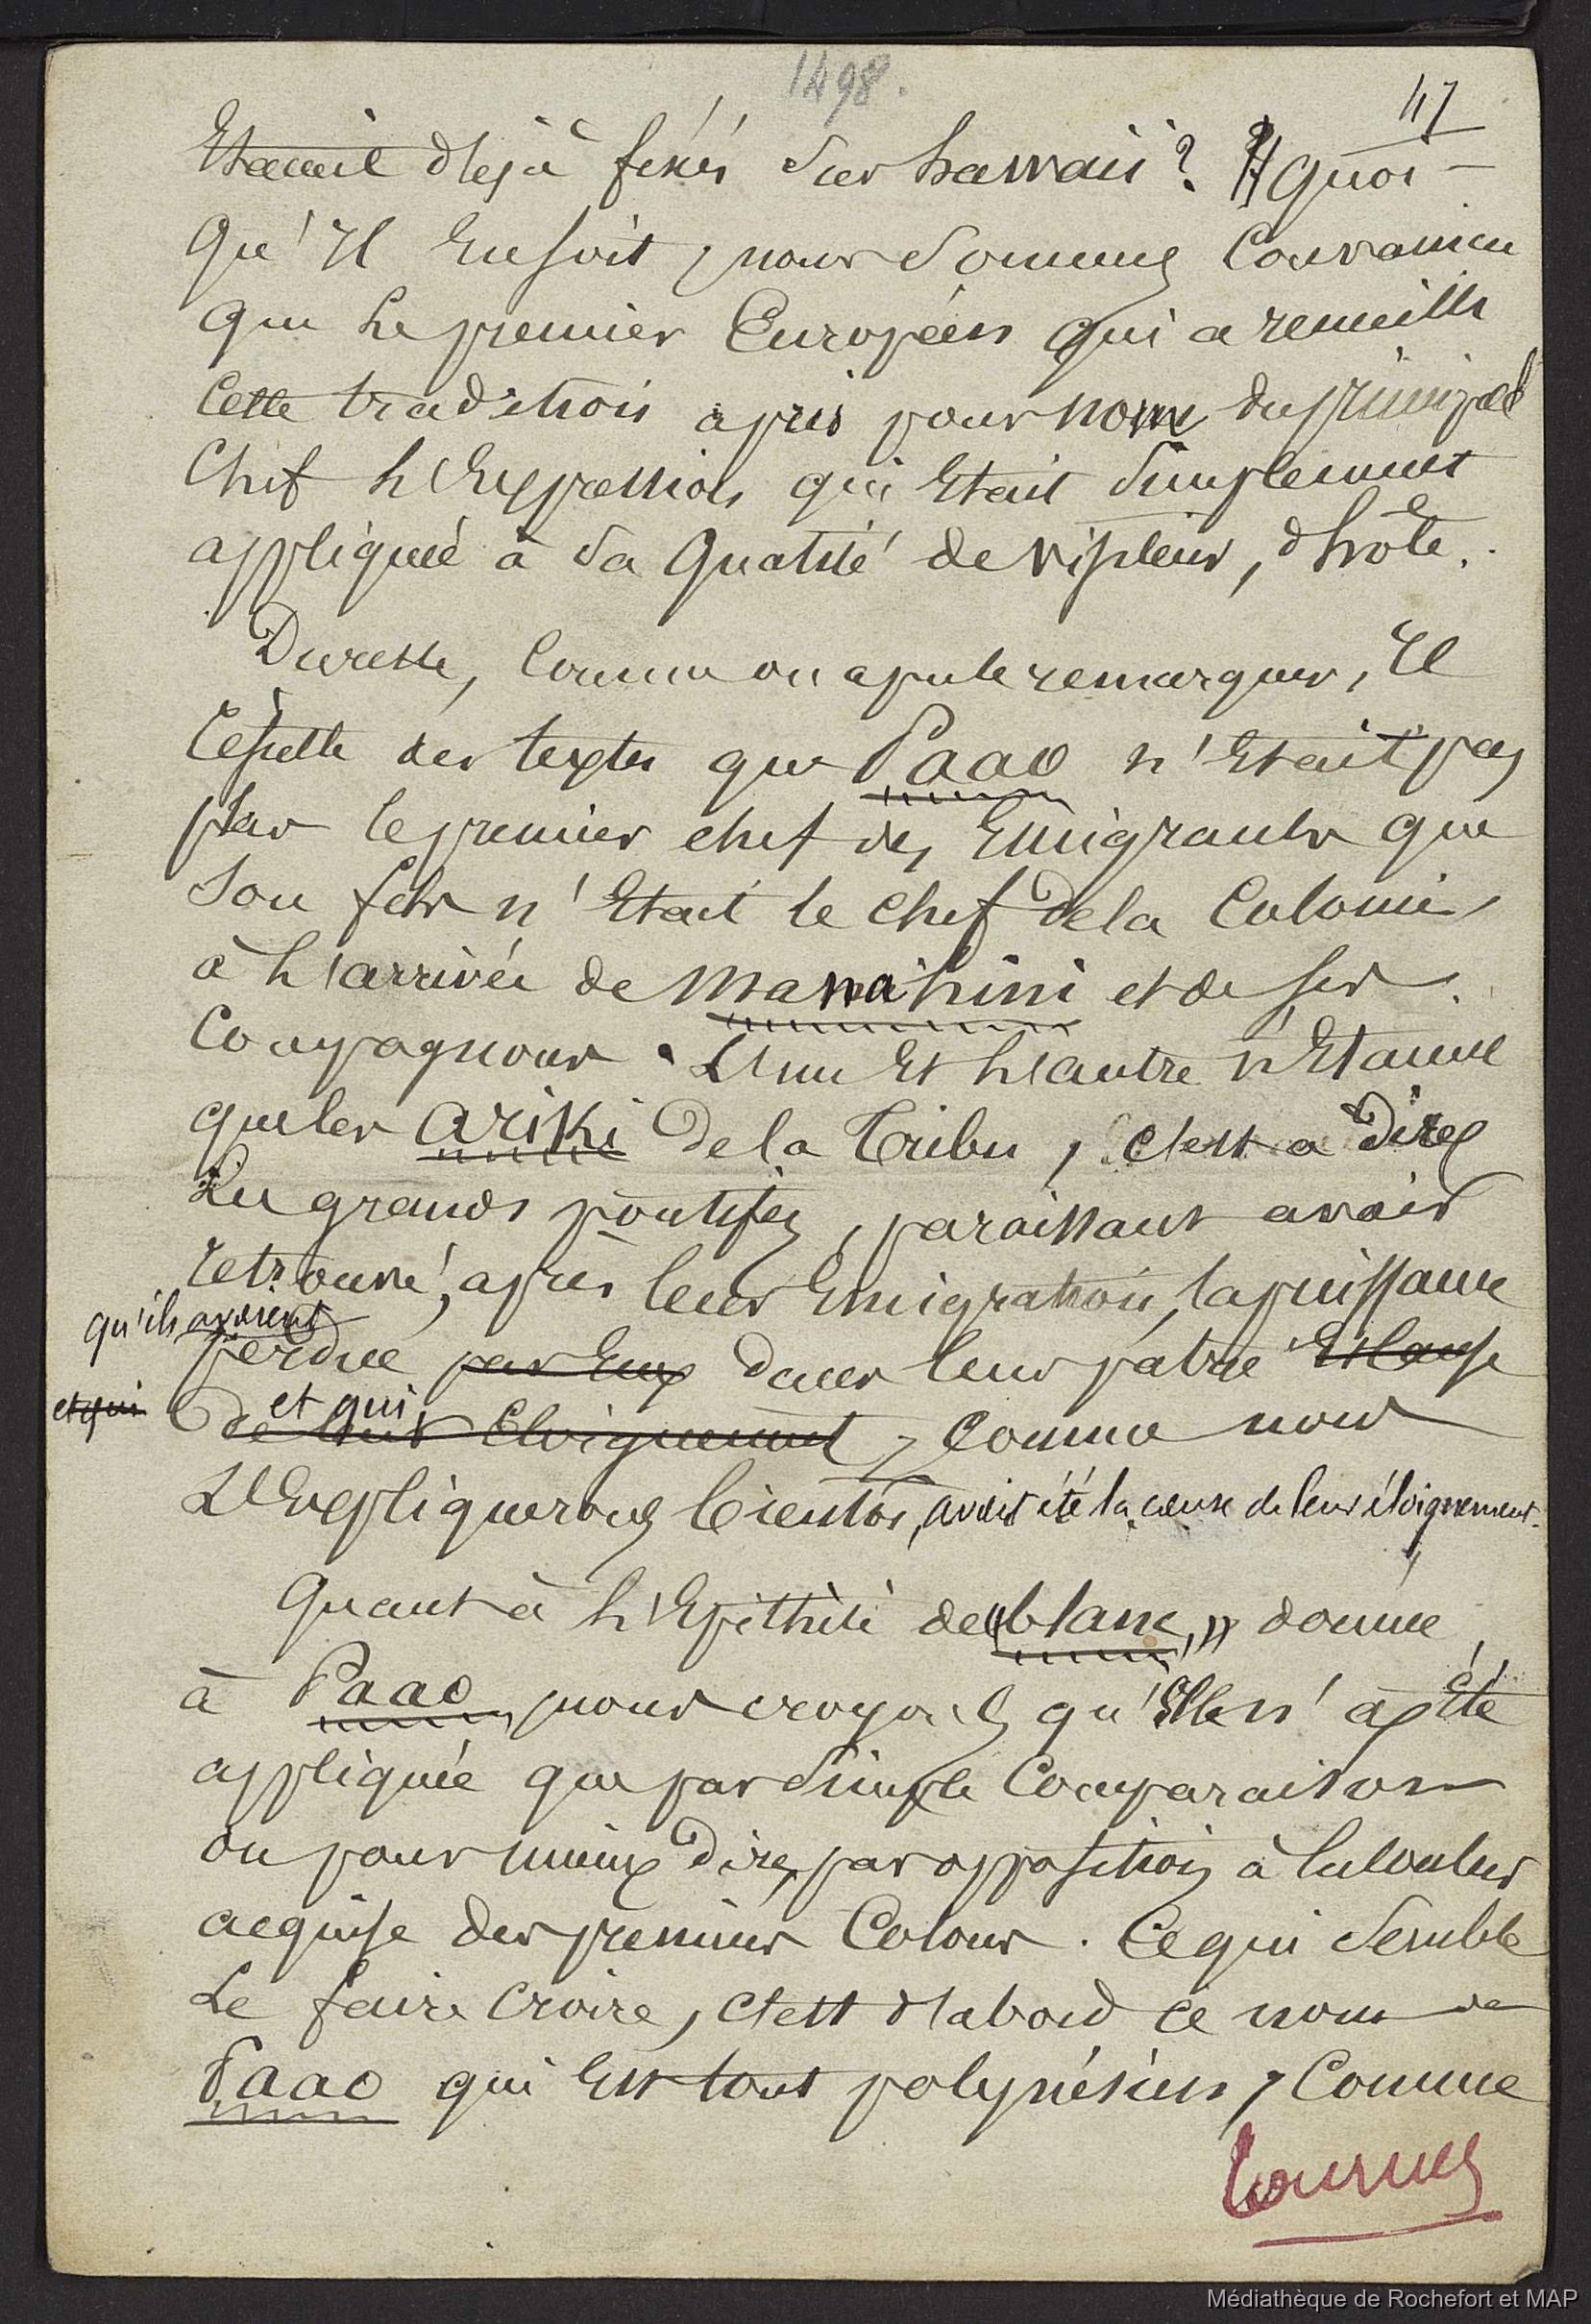 1498.
47
Etaient déjà fixés sur hawaii? Quoi-
Qu'Il En soit, nous sommes Convaincu
que le premier Européen qui a recueilli
Cette tradition a pris pour nom du principal
Chef l'Expression qui Etait simplement
appliquée à sa Qualité de visiteur, d'hôte.
Dureste, Comme on a pu le remarquer, Il
résulte des textes que Paao n'Etait pas
plus le premier chef des Emigrants que
son fils n'Etait le chef de la Colonie
à l'arrivée de Manahini et de ses
Compagnons. L'un Et l'autre n'Etaient
que les ariki de la Tribu, c'est a dire
Les grands pontifes, paraissant avoir
retrouvé, après leur Emigration, la puissance
qu'ils avaient
perdue par Eux dans leur patrie Et Cause
et qui et qui
de leur Eloignement, Comme nous
L'Expliquerons bientôt, avait été la cause de leur éloignement.
Quant à l'Epithète de "blanc," donnée
à Paao, nous croyons qu'Elle n'a Eté
appliquée que par simple Comparaison
ou pour mieux dire, par opposition à la couleur
acquise des premiers Colons. Ce qui semble
Le faire Croire, c'est d'abord ce nom de
Paao qui Est tout polynésien, Comme
tournez
Médiathèque de Rochefort et MAP